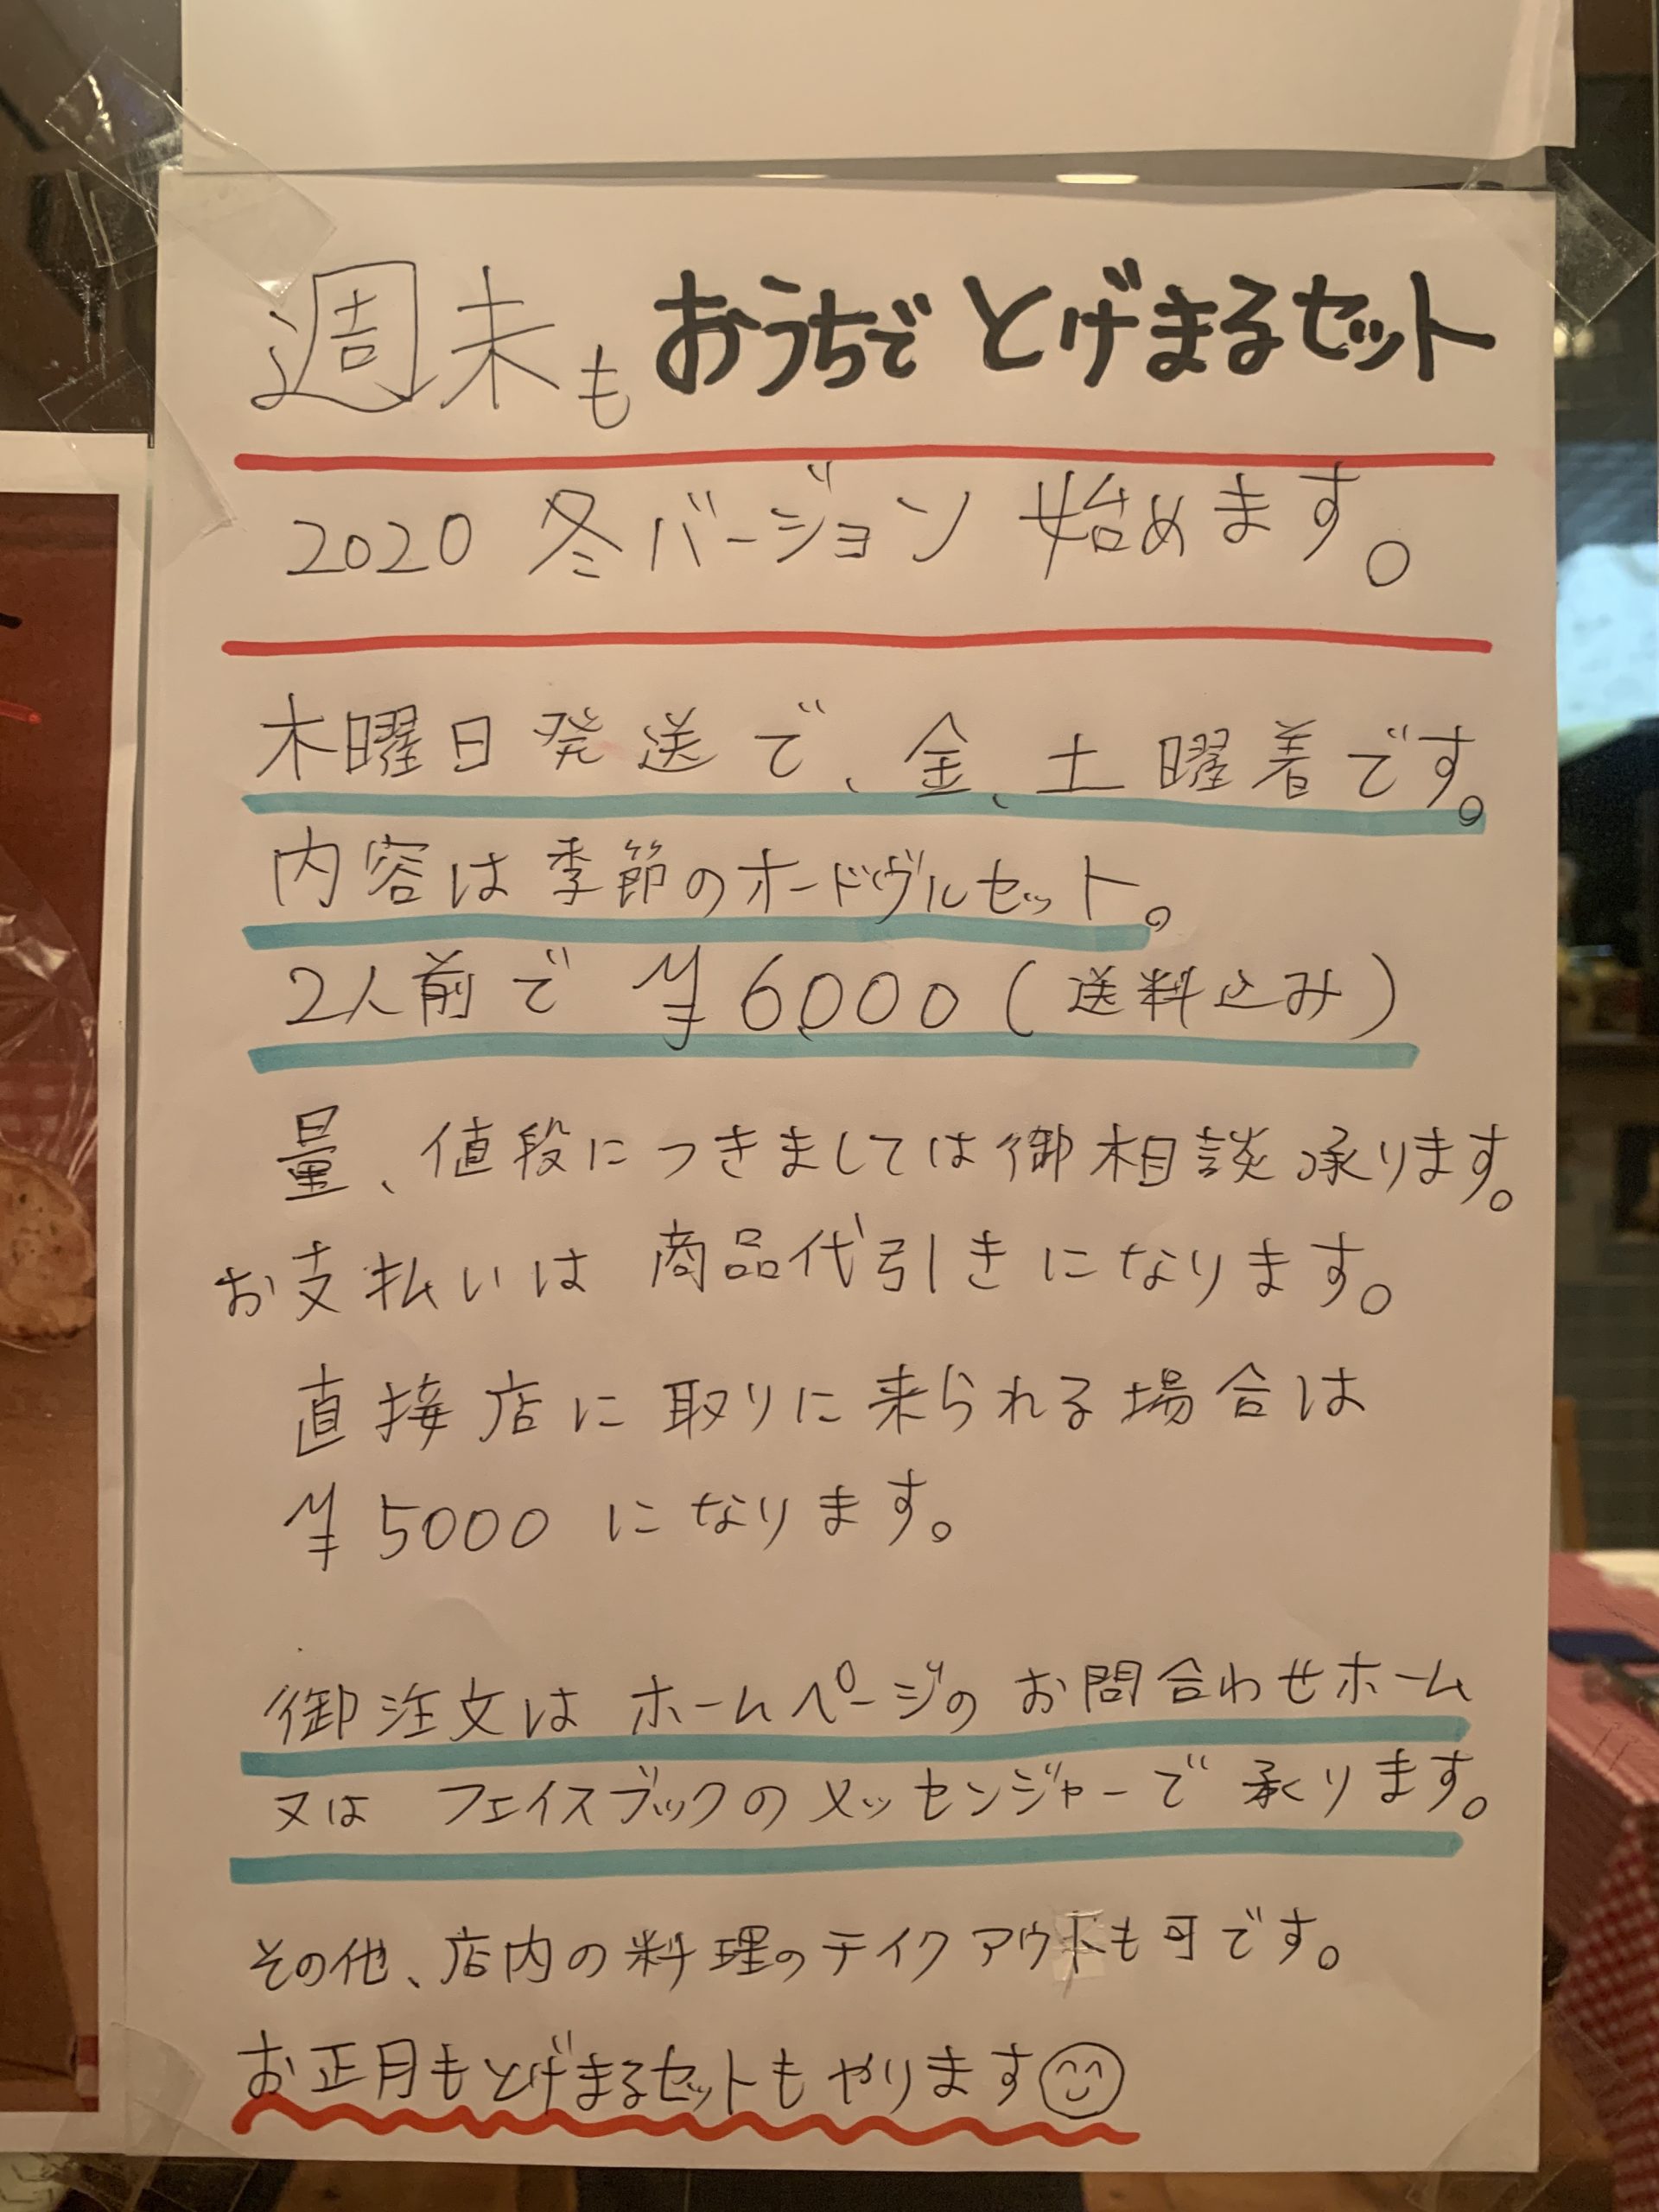 週末もおうちでとげまるセット
2020 冬バージョン 始めます。
木曜日発送で、金、土曜着です。
内容は季節のオードヴルセット。
2人前で ¥6000(送料込み)
量、値段につきましては御相談承ります。
お支払いは 商品代引きになります。
直接店に取りに来られる場合は
¥5000 になります。
御注文は ホームページの お問合わせホーム
又は フェイスブックのメッセンジャーで 承ります。
その他、店内の料理のテイクアウトも可です。
お正月もとげまるセットもやります